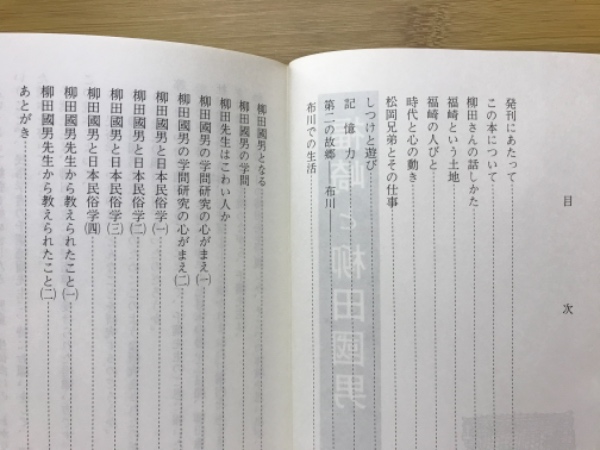 目次
発刊にあたって
この本について
柳田さんの話しかた
福崎という土地
福崎の人びと
時代と心の動き
松岡兄弟とその仕事
しつけと遊び
記憶力
第二の故郷 布川
布川での生活
柳田國男となる
柳田國男の学問
柳田先生はこわい人か
柳田國男の学問研究の心がまえ(一)
柳田國男の学問研究の心がまえ(二)
柳田國男と日本民俗学(一)
柳田國男と日本民俗学(二)
柳田國男と日本民俗学(三)
柳田國男と日本民俗学(四)
柳田國男先生から教えられたこと(一)
柳田國男先生から教えられたこと(二)
あとがき